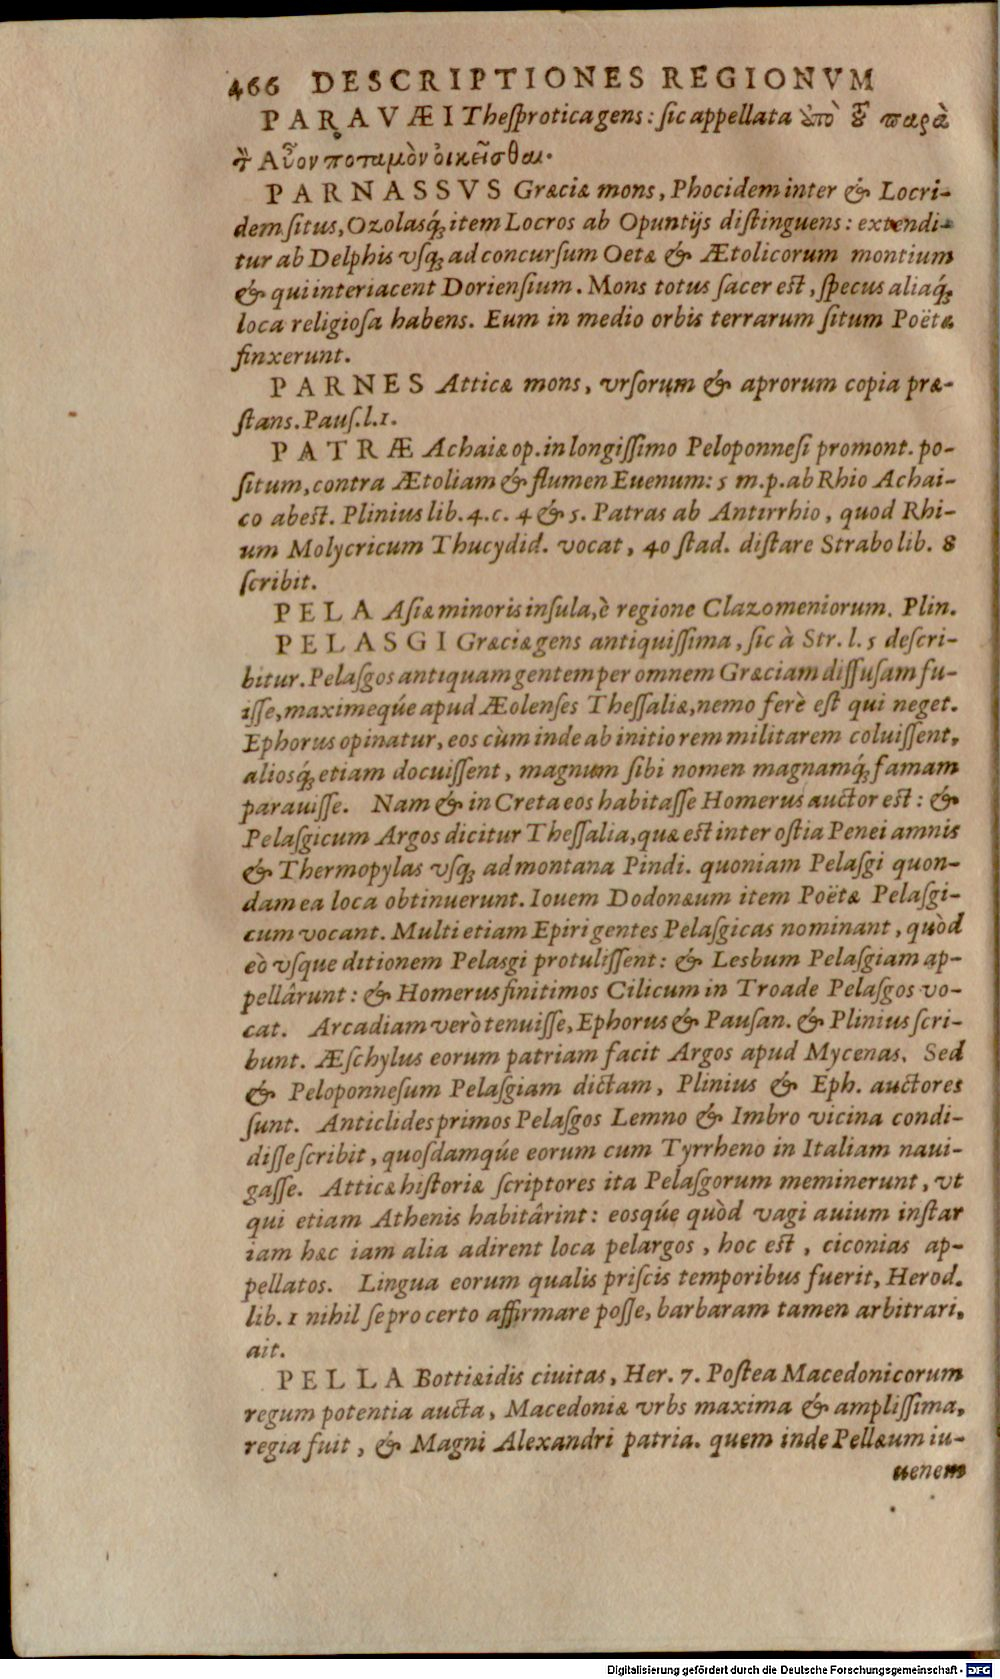 466 DESCRIPTIONES REGIONVM
PARAVÆI Theſprotica gens: ſic appellata ὑπὸ τοῦ παρὰ
τὸν Αὖον ποταμὸν οἰκεῖσθαι.
PARNASSVS Græciæ mons, Phocidem inter & Locri-
dem ſitus, Ozolasq́; item Locros ab Opuntijs diſtinguens: extendi-
tur ab Delphis vſq; ad concurſum Oetæ & Ætolicorum montium
& qui interiacent Dorienſium. Mons totus ſacer eſt, ſpecus aliaq́;
loca religioſa habens. Eum in medio orbis terrarum ſitum Poëtæ
finxerunt.
PARNES Atticæ mons, vrſorum & aprorum copia præ-
ſtans. Pauſ. l. 1.
PATRÆ Achaiæ op. in longiſſimo Peloponneſi promont. po-
ſitum, contra Ætoliam & flumen Euenum: 5 m. p. ab Rhio Achai-
co abeſt. Plinius lib. 4. c. 4 & 5. Patras ab Antirrhio, quod Rhi-
um Molycricum Thucydid. vocat, 40 ſtad. diſtare Strabo lib. 8
ſcribit.
PELA Aſiæ minoris inſula, è regione Clazomeniorum. Plin.
PELASGI Græciæ gens antiquiſſima, ſic à Str. l. 5 deſcri-
bitur. Pelaſgos antiquam gentem per omnem Græciam diffuſam fu-
iſſe, maximeq́ue apud Æolenſes Theſſaliæ, nemo ferè eſt qui neget.
Ephorus opinatur, eos cùm inde ab initio rem militarem coluiſſent,
aliosq́; etiam docuiſſent, magnum ſibi nomen magnamq́; famam
parauiſſe. Nam & in Creta eos habitaſſe Homerus auctor eſt: &
Pelaſgicum Argos dicitur Theſſalia, quæ eſt inter oſtia Penei amnis
& Thermopylas vſq; ad montana Pindi. quoniam Pelaſgi quon-
dam ea loca obtinuerunt. Iouem Dodonæum item Poëtæ Pelaſgi-
cum vocant. Multi etiam Epiri gentes Pelaſgicas nominant, quòd
eò vſque ditionem Pelasgi protuliſſent: & Lesbum Pelaſgiam ap-
pellârunt: & Homerus finitimos Cilicum in Troade Pelaſgos vo-
cat. Arcadiam verò tenuiſſe, Ephorus & Pauſan. & Plinius ſcri-
bunt. Æſchylus eorum patriam facit Argos apud Mycenas. Sed
& Peloponneſum Pelaſgiam dictam, Plinius & Eph. auctores
ſunt. Anticlides primos Pelaſgos Lemno & Imbro vicina condi-
diſſe ſcribit, quoſdamq́ue eorum cum Tyrrheno in Italiam naui-
gaſſe. Atticæ hiſtoriæ ſcriptores ita Pelaſgorum meminerunt, vt
qui etiam Athenis habitârint: eosq́ue quòd vagi auium inſtar
iam hæc iam alia adirent loca pelargos, hoc eſt, ciconias ap-
pellatos. Lingua eorum qualis priſcis temporibus fuerit, Herod.
lib. 1 nihil ſe pro certo affirmare poſſe, barbaram tamen arbitrari,
ait.
PELLA Bottiæidis ciuitas, Her. 7. Poſtea Macedonicorum
regum potentia aucta, Macedoniæ vrbs maxima & ampliſſima,
regia fuit, & Magni Alexandri patria. quem inde Pellæum iu-
uenem
Digitalisierung gefördert durch die Deutsche Forschungsgemeinschaft - DFG